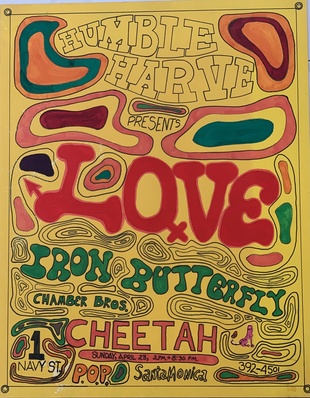 HUMBLE
HARVE
PRESENTS
LOVE
IRON BUTTERFLY
CHAMBER BROS.
CHEETAH
SUNDAY, APRIL 23, 2PM & 8:30 P.M.
1 NAVY ST.
P.O.P. Santa Monica
392-4501